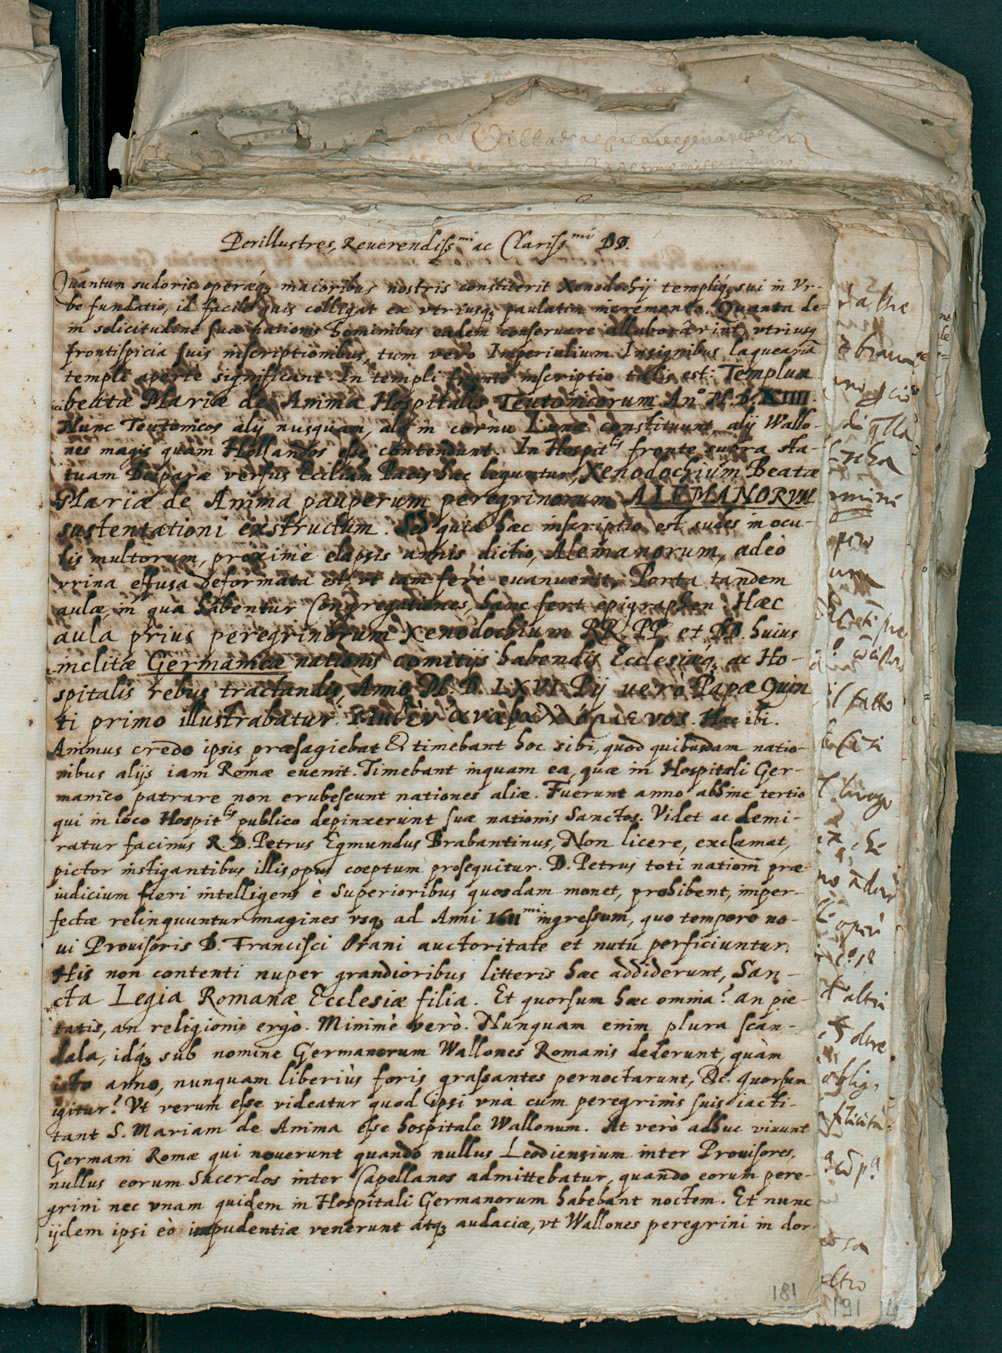 Perillustres, Reverendiss.mi ac Clariss.mi DD.
Quantum sudoris operæq, maioribus nostris constiterit Xenodochij templiq, sui in Vr-
be fundatio, id facilè quis colliget ex vtriusq, paulatim incremento. Quanta de-
in solicitudine suæ nationis hominibus eadem conservare allaborarint, vtriusq
frontispicia suis inscriptionibus, tum vero Imperialium Insignibus laquearia
templi apertè significant. In templi fronte inscriptio talis est: Templum
beatæ Mariæ de Anima Hospitalis Teutonicorum An.o M.D.XIIII.
Hunc Teutonicos alij nusquam, alij in cornu Lunæ constituunt, alij Wallo-
nes magis quàm Hollandos esse contendunt. In Hospit.lis fronte supra sta-
tuam Deiparæ versus Eccliam Pacis hæc leguntur, Xenodochium Beatæ
Mariæ de Anima pauperum peregrinorum ALEMANORVM
sustentationi exstructum. Sed quia hæc inscriptio est sudes in ocu-
lis multorum, proximè elapsis annis dictio, Alemanorum, adeò
vrina effusa deformata est, vt iam ferè evanuerit. Porta tandem
aulæ, in qua habentur Congregationes, hanc fert epigraphen: Hæc
aula prius peregrinorum Xenodochium RR. PP. et DD. huius
inclitæ Germanicæ nationis comitijs habendis Ecclesiæq, ac Ho-
spitalis rebus tractandis, Anno M.D.LXVI. Pij uerò Papæ Quin
ti primo illustrabatur, Hæc ibi.
Animus credo ipsis præsagiebat & timebant hoc sibi, quod quibusdam natio-
nibus alijs iam Romæ evenit. Timebant inquam ea, quæ in Hospitali Ger-
manico patrare non erubescunt nationes aliæ. Fuerunt anno abhinc tertio
qui in loco Hospit.lis publico depinxerunt suæ nationis Sanctos. Videt ac demi-
ratur facinus R. D. Petrus Egmundus Brabantinus, Non licere, exclamat,
pictor instigantibus illis opus coeptum prosequitur. D. Petrus toti nationi præ-
iudicium fieri intelligens è Superioribus quosdam monet, prohibent, imper-
fectæ relinquuntur imagines vsq, ad Anni 1611mi ingressum, quo tempore no-
ui Provisoris D. Francisci Orani auctoritate et nutu perficiuntur,
His non contenti nuper grandioribus litteris hæc addiderunt, San-
cta Legia Romanæ Ecclesiæ filia. Et quorsum hæc omnia? an pie-
tatis, an religionis ergò. Minimè verò. Nunquam enim plura scan-
dala, idq, sub nomine Germanorum Wallones Romanis dederunt, quàm
isto anno, nunquam liberiùs foris grassantes pernoctarunt, &c. quorsum
igitur? Vt verum esse videatur quod ipsi vnà cum peregrinis suis iacti-
tant S. Mariam de Anima esse hospitale Wallonum. At verò adhuc vivunt
Germani Romæ qui noverunt quando nullus Leodiensium inter Provisores,
nullus eorum Sacerdos inter Capellanos admittebatur, quando eorum pere-
grini nec vnam quidem in Hospitali Germanorum habebant noctem. Et nunc
ijdem ipsi eò impudentiæ venerunt atq, audaciæ, vt Wallones peregrini in dor-
181
191